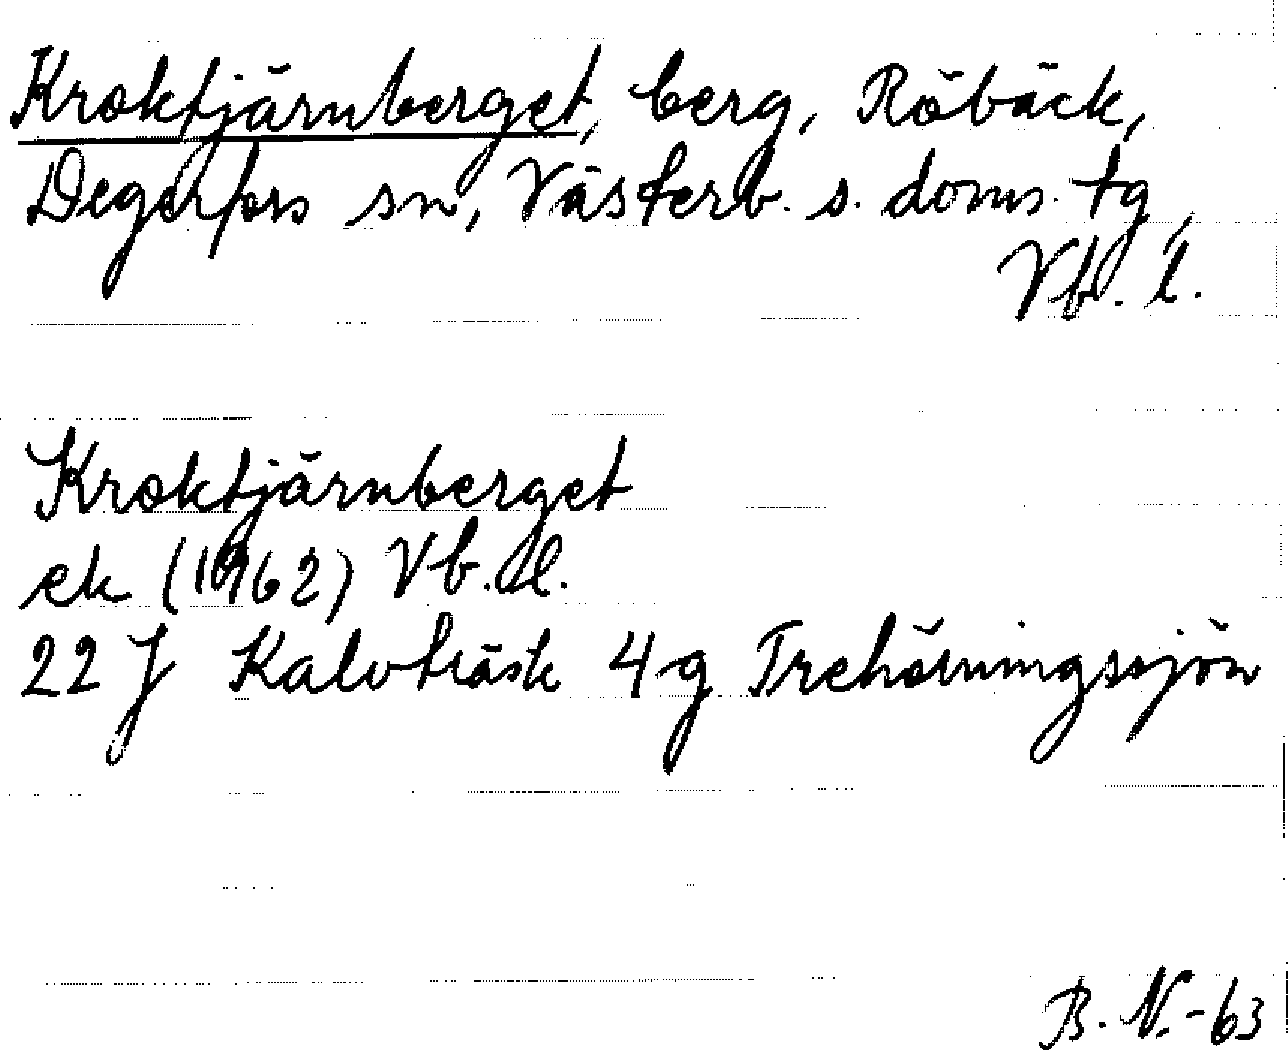 Kroktjärnberget, berg, Röbäck,
Degerfors sn, Västerb. s. doms. tg,
Vb. l.
Kroktjärnberget
ek (1962) Vb. l.
22 J Kalvträsk 4 g Trehörningssjön
B. N. -63